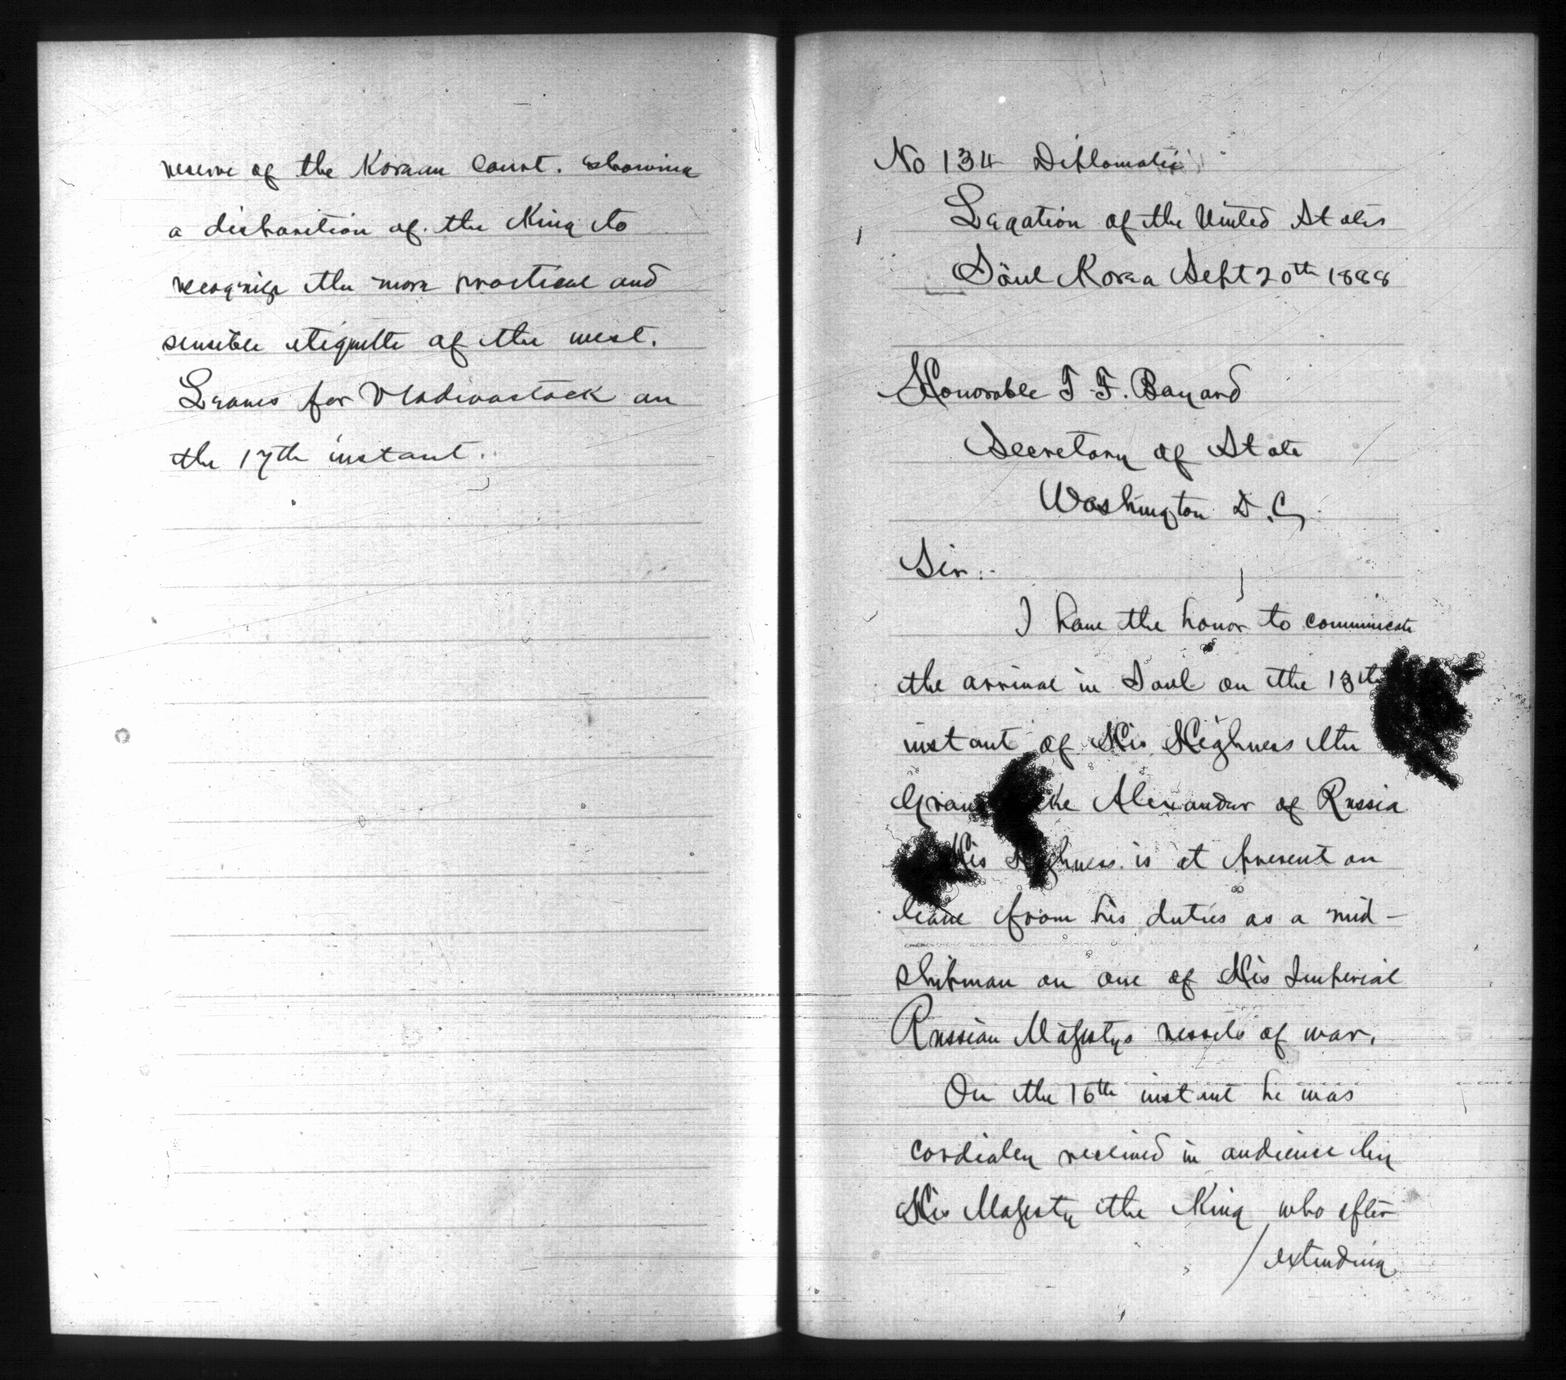 reserve of the Korean Court. Showing
a disposition of the King to
recognize the more practical and
sensible etiquette of the west.
Leaves for Vladivostock on
the 17th instant.
No 134 Diplomatic
Legation of the United States
Söul Korea Sept 20th 1888
Honorable T. F. Bayard
Secretary of State
Washington D.C.
Sir:
I have the honor to communicate
the arrival in Soul on the 13th
instant of His Highness the
Alexander of Russia
His Highness is at present on
leave from his duties as a mid-
shipman on one of His Imperial
Russian Majestys vessels of war.
On the 16th instant he was
cordialey received in audience by
His Majesty the King who after
/extending